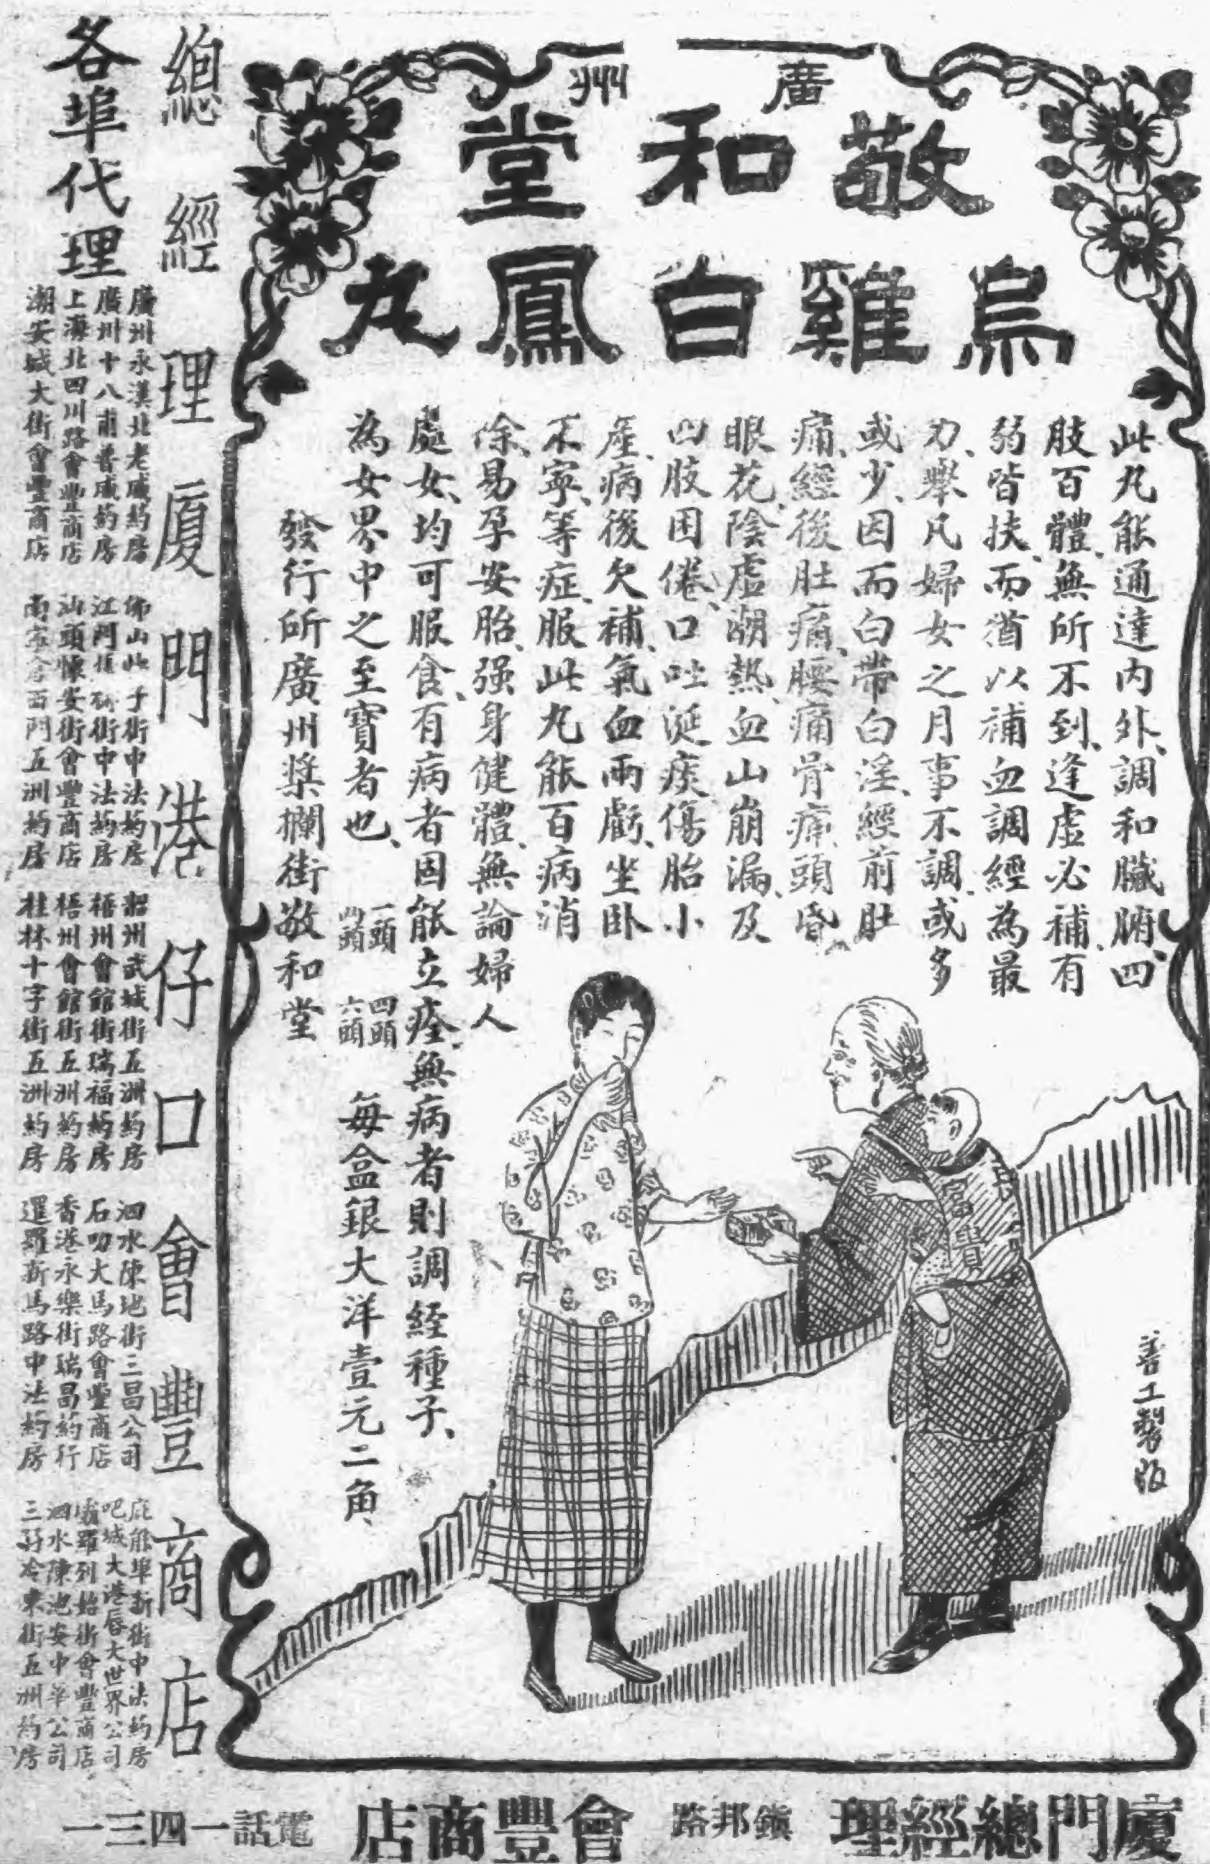 廣州
敬和堂
烏雞白鳳丸
此丸能通達內外、調和臟腑、四
肢百體、無所不到、逢虛必補、有
弱皆扶、而猶以補血調經為最
力、舉凡婦女之月事不調、或多
或少、因而白帶白淫、經前肚
痛、經後肚痛、腰痛骨痛、頭昏
眼花、陰虛潮熱、血山崩漏、及
四肢困倦、口吐涎痰、傷胎小
產、病後欠補、氣血兩虧、坐卧
不寧、等症、服此丸能百病消
除、易孕安胎、强身健體、無論婦人
處女、均可服食、有病者固能立痊、無病者則調經種子、
為女界中之至寶者也、
一頭 四頭
四頭 六頭
每盒銀大洋壹元二角、
發行所廣州槳欄街敬和堂
富貴
善工製版
總經理廈門港仔口會豐商店
各埠代理
廣州永漢北老威藥房
廣州十八甫普威葯房
上海北四川路會豐商店
潮安城大街會豐商店
佛山 子街中法葯房
江門 街中法葯房
汕頭懷安街會豐商店
南寧倉西門五洲葯房
韶州武城街五洲葯房
梧州會館街瑞福葯房
梧州會館街五洲葯房
桂林十字街五洲葯房
泗水陳地街三昌公司
石叻大馬路會豐商店
香港永樂街瑞昌葯行
暹羅新馬路中法葯房
庇能埠新街中法葯房
吧城大港唇大世界公司
羅列始街會豐商店
泗水陳池安中華公司
街五洲葯房
廈門總經理
鎮邦路
會豐商店
電話一四三一